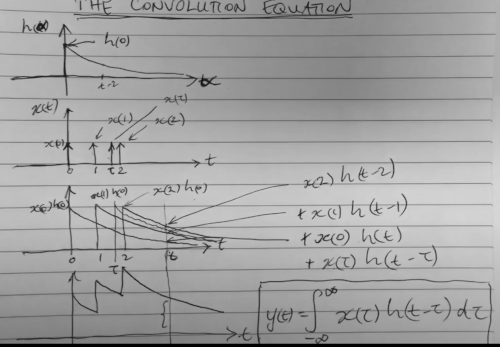 THE CONVOLUTION EQUATION
h(α)
h(0)
t-2
α
x(t)
x(τ)
x(1)
x(2)
x(0)
0 1 τ 2 t
x(0)h(0)
x(1)h(0)
x(2)h(0)
x(2)h(t-2)
+ x(1)h(t-1)
+ x(0)h(t)
+ x(τ)h(t-τ)
0 1 τ 2 t t
t
y(t) = ∫_{-∞}^{∞} x(τ)h(t-τ)dτ